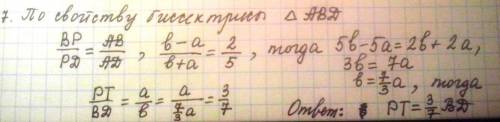 7. По свойству биссектрисы △ ABD
BP/PD = AB/AD, (b-a)/(b+a) = 2/5, тогда 5b-5a=2b+2a,
3b= 7a
b=7/3 a, тогда
PT/BD = a/b = a/(7/3 a) = 3/7
Ответ: PT=3/7 BD